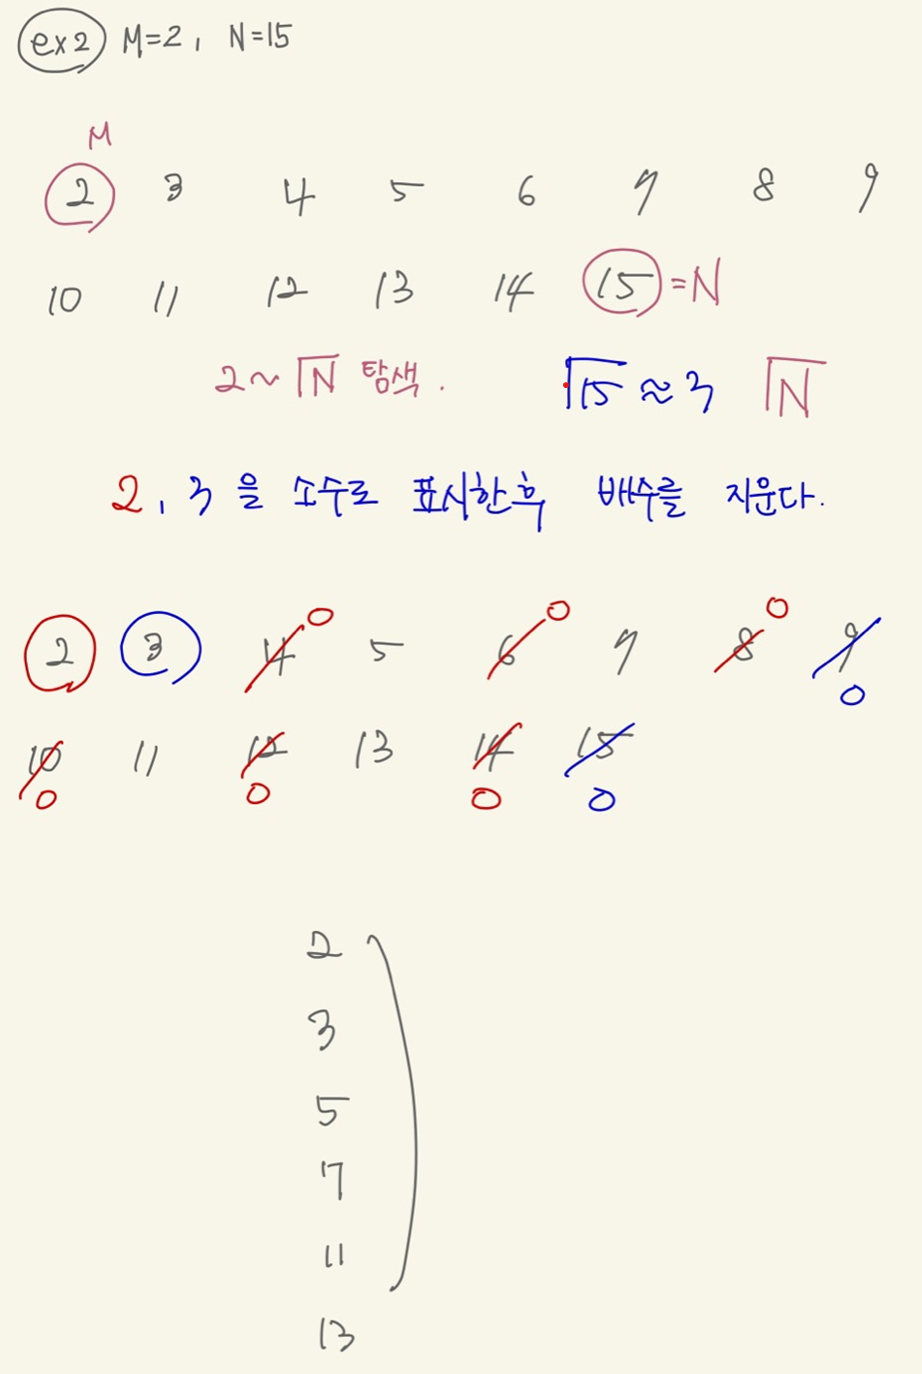 ex2 M=2, N=15
M
2 3 4 5 6 7 8 9
10 11 12 13 14 15 =N
2~√N 탐색. √15≈3 √N
2, 3을 소수로 표시한후 배수를 지운다.
2 3 4 0 5 6 0 7 8 0 9 0
10 0 11 12 0 13 14 0 15 0
2
3
5
7
11
13